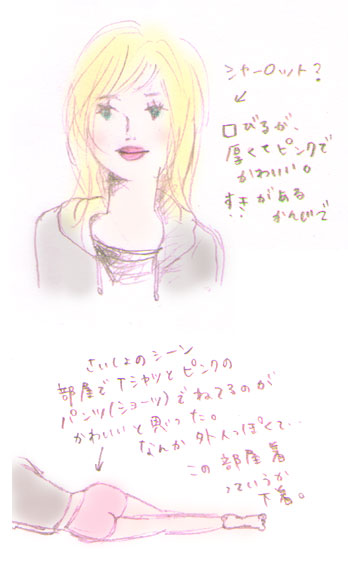 シャーロット?
口びるが、
厚くてピンクで
かわいい。
すきがある
かんじで
さいしょのシーン
部屋でTシャツとピンクの
パンツ(ショーツ)でねてるのが
かわいいと思った。
なんか外人っぽくて…
この部屋着
っていうか
下着。